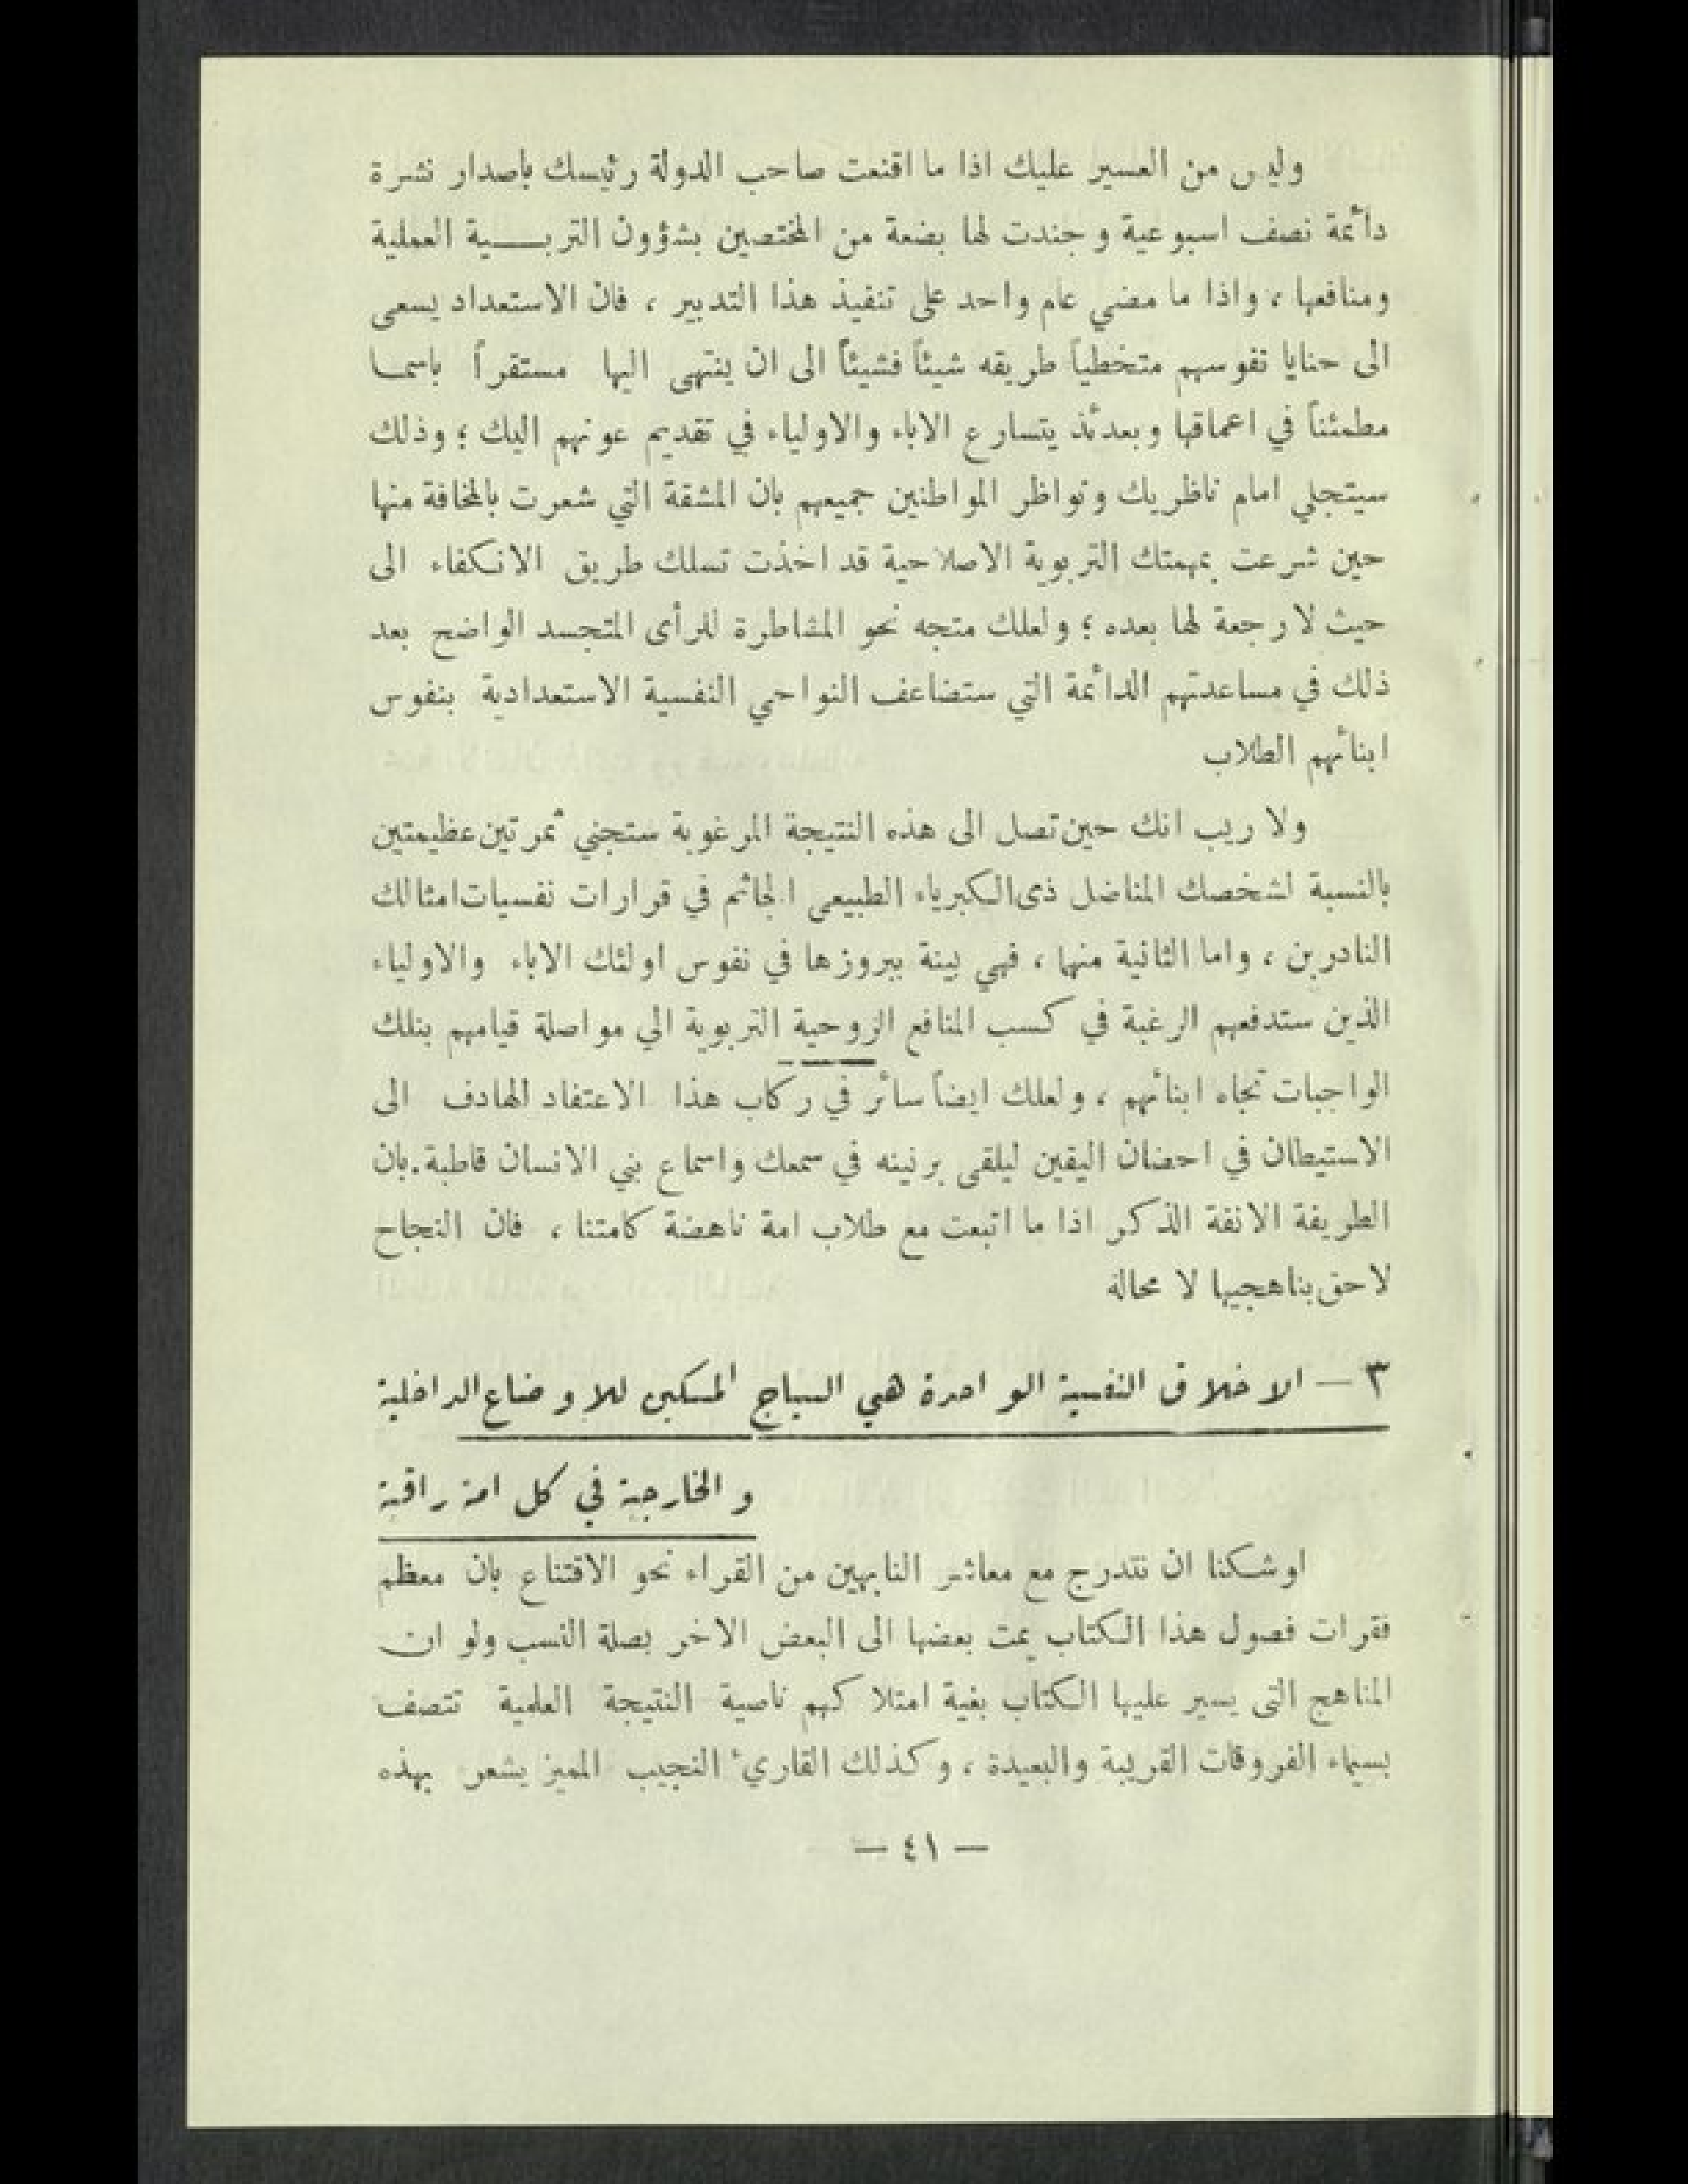 وليس من العسير عليك اذا ما اقنعت صاحب الدولة رئيسك باصدار نشرة
دائمة نصف اسبوعية وجندت لها بضعة من المختصين بشؤون التربـــية العملية
ومنافعها ، واذا ما مضي عام واحد على تنفيذ هذا التدبير ، فان الاستعداد يسعى
الى حنايا نفوسهم متخطياً طريقه شيئاً فشيئاً الى ان ينتهى اليها مستقراً باسما
مطمئناً في اعماقها وبعدئذ يتسارع الاباء والاولياء في تقديم عونهم اليك ؛ وذلك
سيتجلي امام ناظريك ونواظر المواطنين جميعهم بان المشقة التي شعرت بالمخافة منها
حين شرعت بمهمتك التربوية الاصلاحية قد اخذت تسلك طريق الانكفاء الى
حيث لا رجعة لها بعده ؛ ولعلك متجه نحو المشاطرة للرأى المتجسد الواضح بعد
ذلك في مساعدتهم الدائمة التي ستضاعف النواحي النفسية الاستعدادية بنفوس
ابنائهم الطلاب
ولا ريب انك حين تصل الى هذه النتيجة المرغوبة ستجني ثمرتين عظيمتين
بالنسبة لشخصك المناضل ذى الكبرياء الطبيعى الجاثم في قرارات نفسيات امثالك
النادرين ، واما الثانية منها ، فهي بينة ببروزها في نفوس اولئك الاباء والاولياء
الذين ستدفعهم الرغبة في كسب المنافع الروحية التربوية الي مواصلة قيامهم بتلك
الواجبات تجاه ابنائهم ، ولعلك ايضاً سائر في ركاب هذا الاعتقاد الهادف الى
الاستيطان في احضان اليقين ليلقى برنينه في سمعك واسماع بني الانسان قاطبة . بان
الطريقة الانفة الذكر اذا ما اتبعت مع طلاب امة ناهضة كامتنا ، فان النجاح
لاحق بناهجيها لا محالة
٣ — الاخلاق النفسية الواحدة هي السياج المسكين للاوضاع الداخلية
والخارجية في كل امة راقية
اوشكنا ان نتدرج مع معاشر النابهين من القراء نحو الاقتناع بان معظم
فقرات فصول هذا الكتاب يمت بعضها الى البعض الاخر بصلة النسب ولو ان
المناهج التى يسير عليها الكتاب بغية امتلاكهم ناصية النتيجة العلمية تتصف
بسيماء الفروقات القريبة والبعيدة ، وكذلك القاريء النجيب المميز يشعر بهذه
— ٤١ —